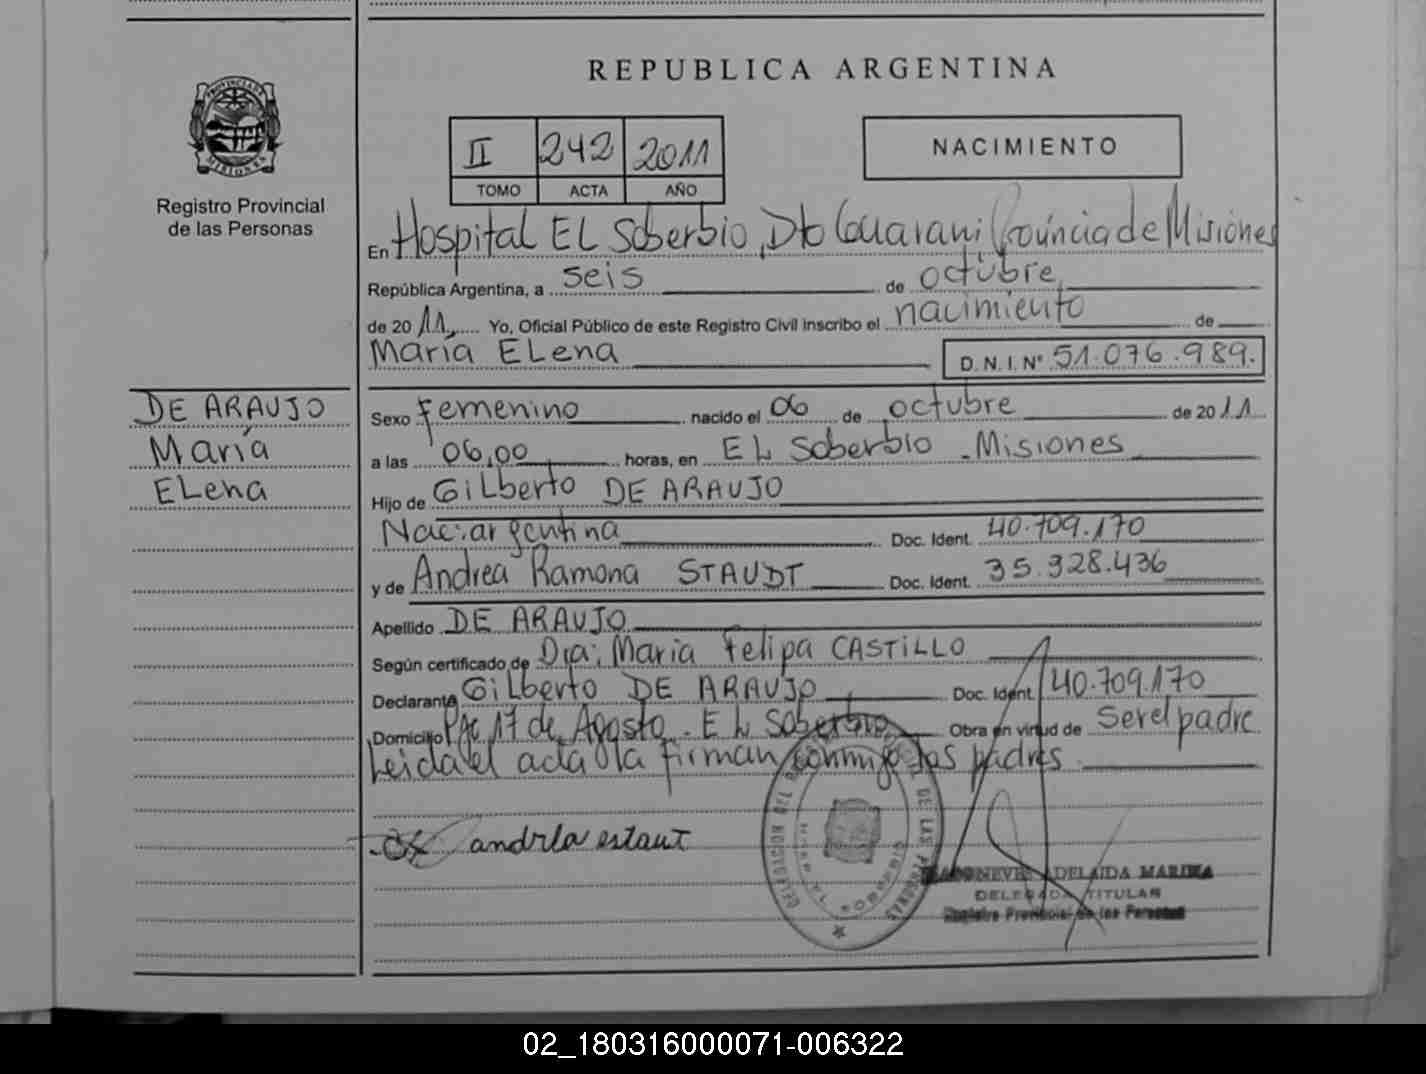 REPUBLICA ARGENTINA
PROVINCIA DE
MISIONES
Registro Provincial
de las Personas
II 242 2011
TOMO ACTA AÑO
NACIMIENTO
En Hospital EL Soberbio, Dto Guarani Provincia de Misiones
República Argentina, a seis de octubre
de 2011 Yo, Oficial Público de este Registro Civil inscribo el nacimiento de
María ELena D. N. I. Nº 51.076.989.
DE ARAUJO
María
ELena
Sexo Femenino nacido el 06 de octubre de 2011
a las 06,00 horas, en EL Soberbio - Misiones
Hijo de GiLberto DE ARAUJO
Nac: argentina Doc. Ident. 40.709.170
y de Andrea Ramona STAUDT Doc. Ident. 35.328.436
Apellido DE ARAUJO
Según certificado de Dra: Maria Felipa CASTiLLO
Declarante GiLberto DE ARAUJO Doc. Ident. 40.709.170
Domicilio 17 de Agosto - EL Soberbio Obra en virtud de ser el padre
Leida el acta la firman conmigo los padres
andrea estaut
DELEGACION DEL DE LAS PERSONAS
ADELAIDA MARINA
DELEGADA TITULAR
Registro Provincial de las Personas
02_180316000071-006322